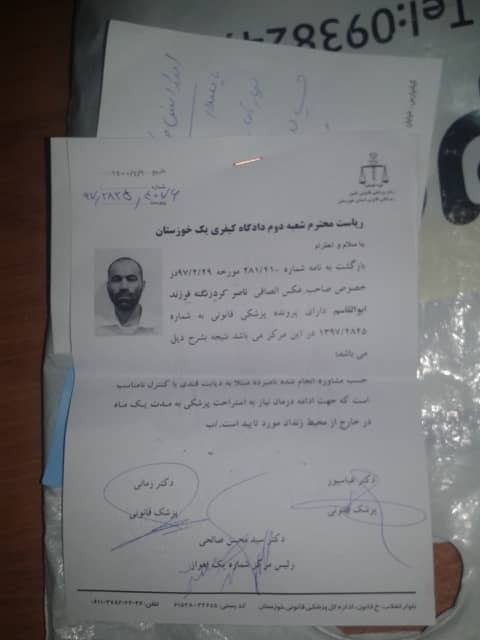 Tel:09382
تاریخ ۱۴۰۰/۲/۲۰
شماره
۹۷/۲۸۲۵
قوه قضائیه
سازمان پزشکی قانونی کشور
ریاست محترم شعبه دوم دادگاه کیفری یک خوزستان
با سلام و احترام
بازگشت به نامه شماره ۲۸۱/۲۱۰ مورخه ۹۷/۲/۲۹در
خصوص صاحب عکس الصاقی ناصر کردزنگنه فرزند
ابوالقاسم دارای پرونده پزشکی قانونی به شماره
۱۳۹۷/۲۸۲۵ در این مرکز می باشد نتیجه بشرح ذیل
می باشد:
حسب مشاوره انجام شده نامبرده مبتلا به دیابت قندی با کنترل نامناسب
است که جهت ادامه درمان نیاز به استراحت پزشکی به مدت یک ماه
در خارج از محیط زندان مورد تایید است.
دکتر عباسپور
دکتر زمانی
پزشک قانونی
پزشک قانونی
دکتر سید محسن صالحی
رئیس مرکز شماره یک اهواز
بلوار انقلاب، خ قانون، اداره کل پزشکی قانونی خوزستان کد پستی: تلفن: